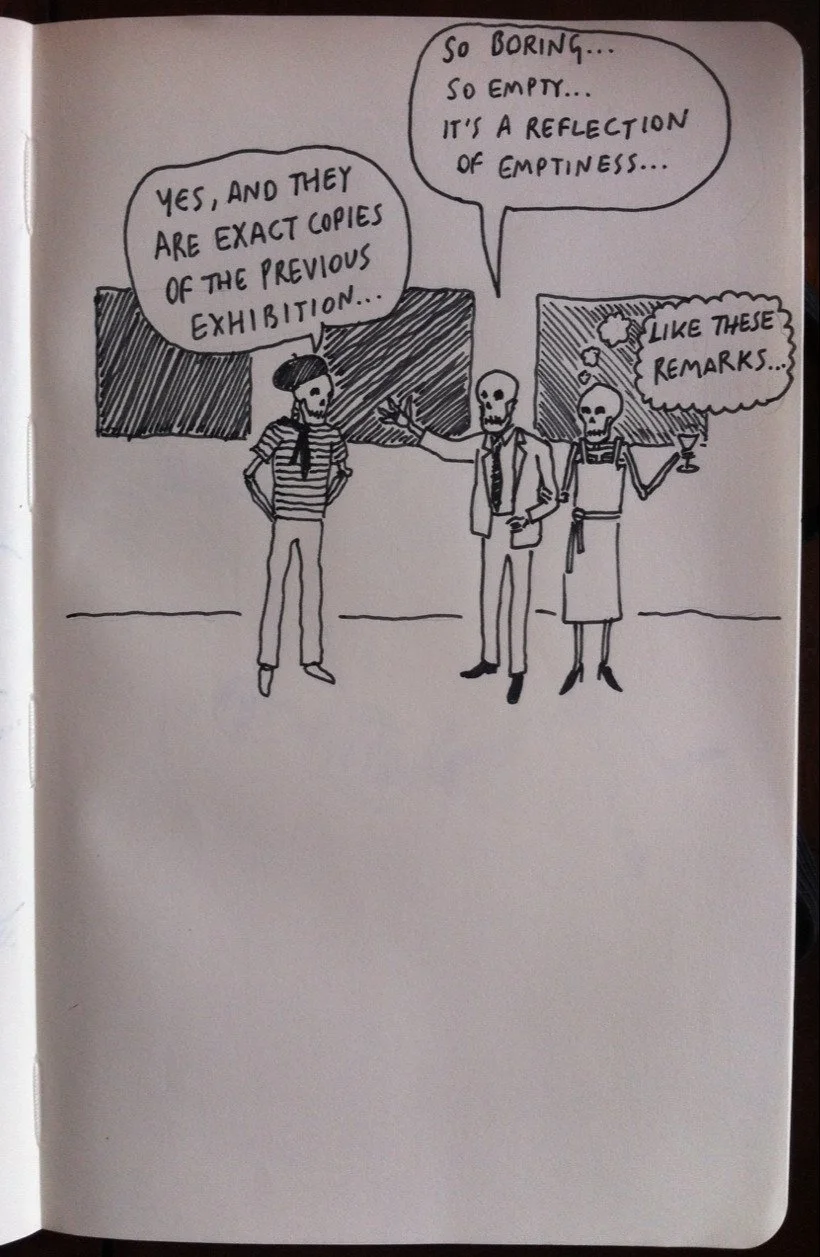 SO BORING...
SO EMPTY...
IT'S A REFLECTION
OF EMPTINESS...
YES, AND THEY
ARE EXACT COPIES
OF THE PREVIOUS
EXHIBITION...
LIKE THESE
REMARKS...